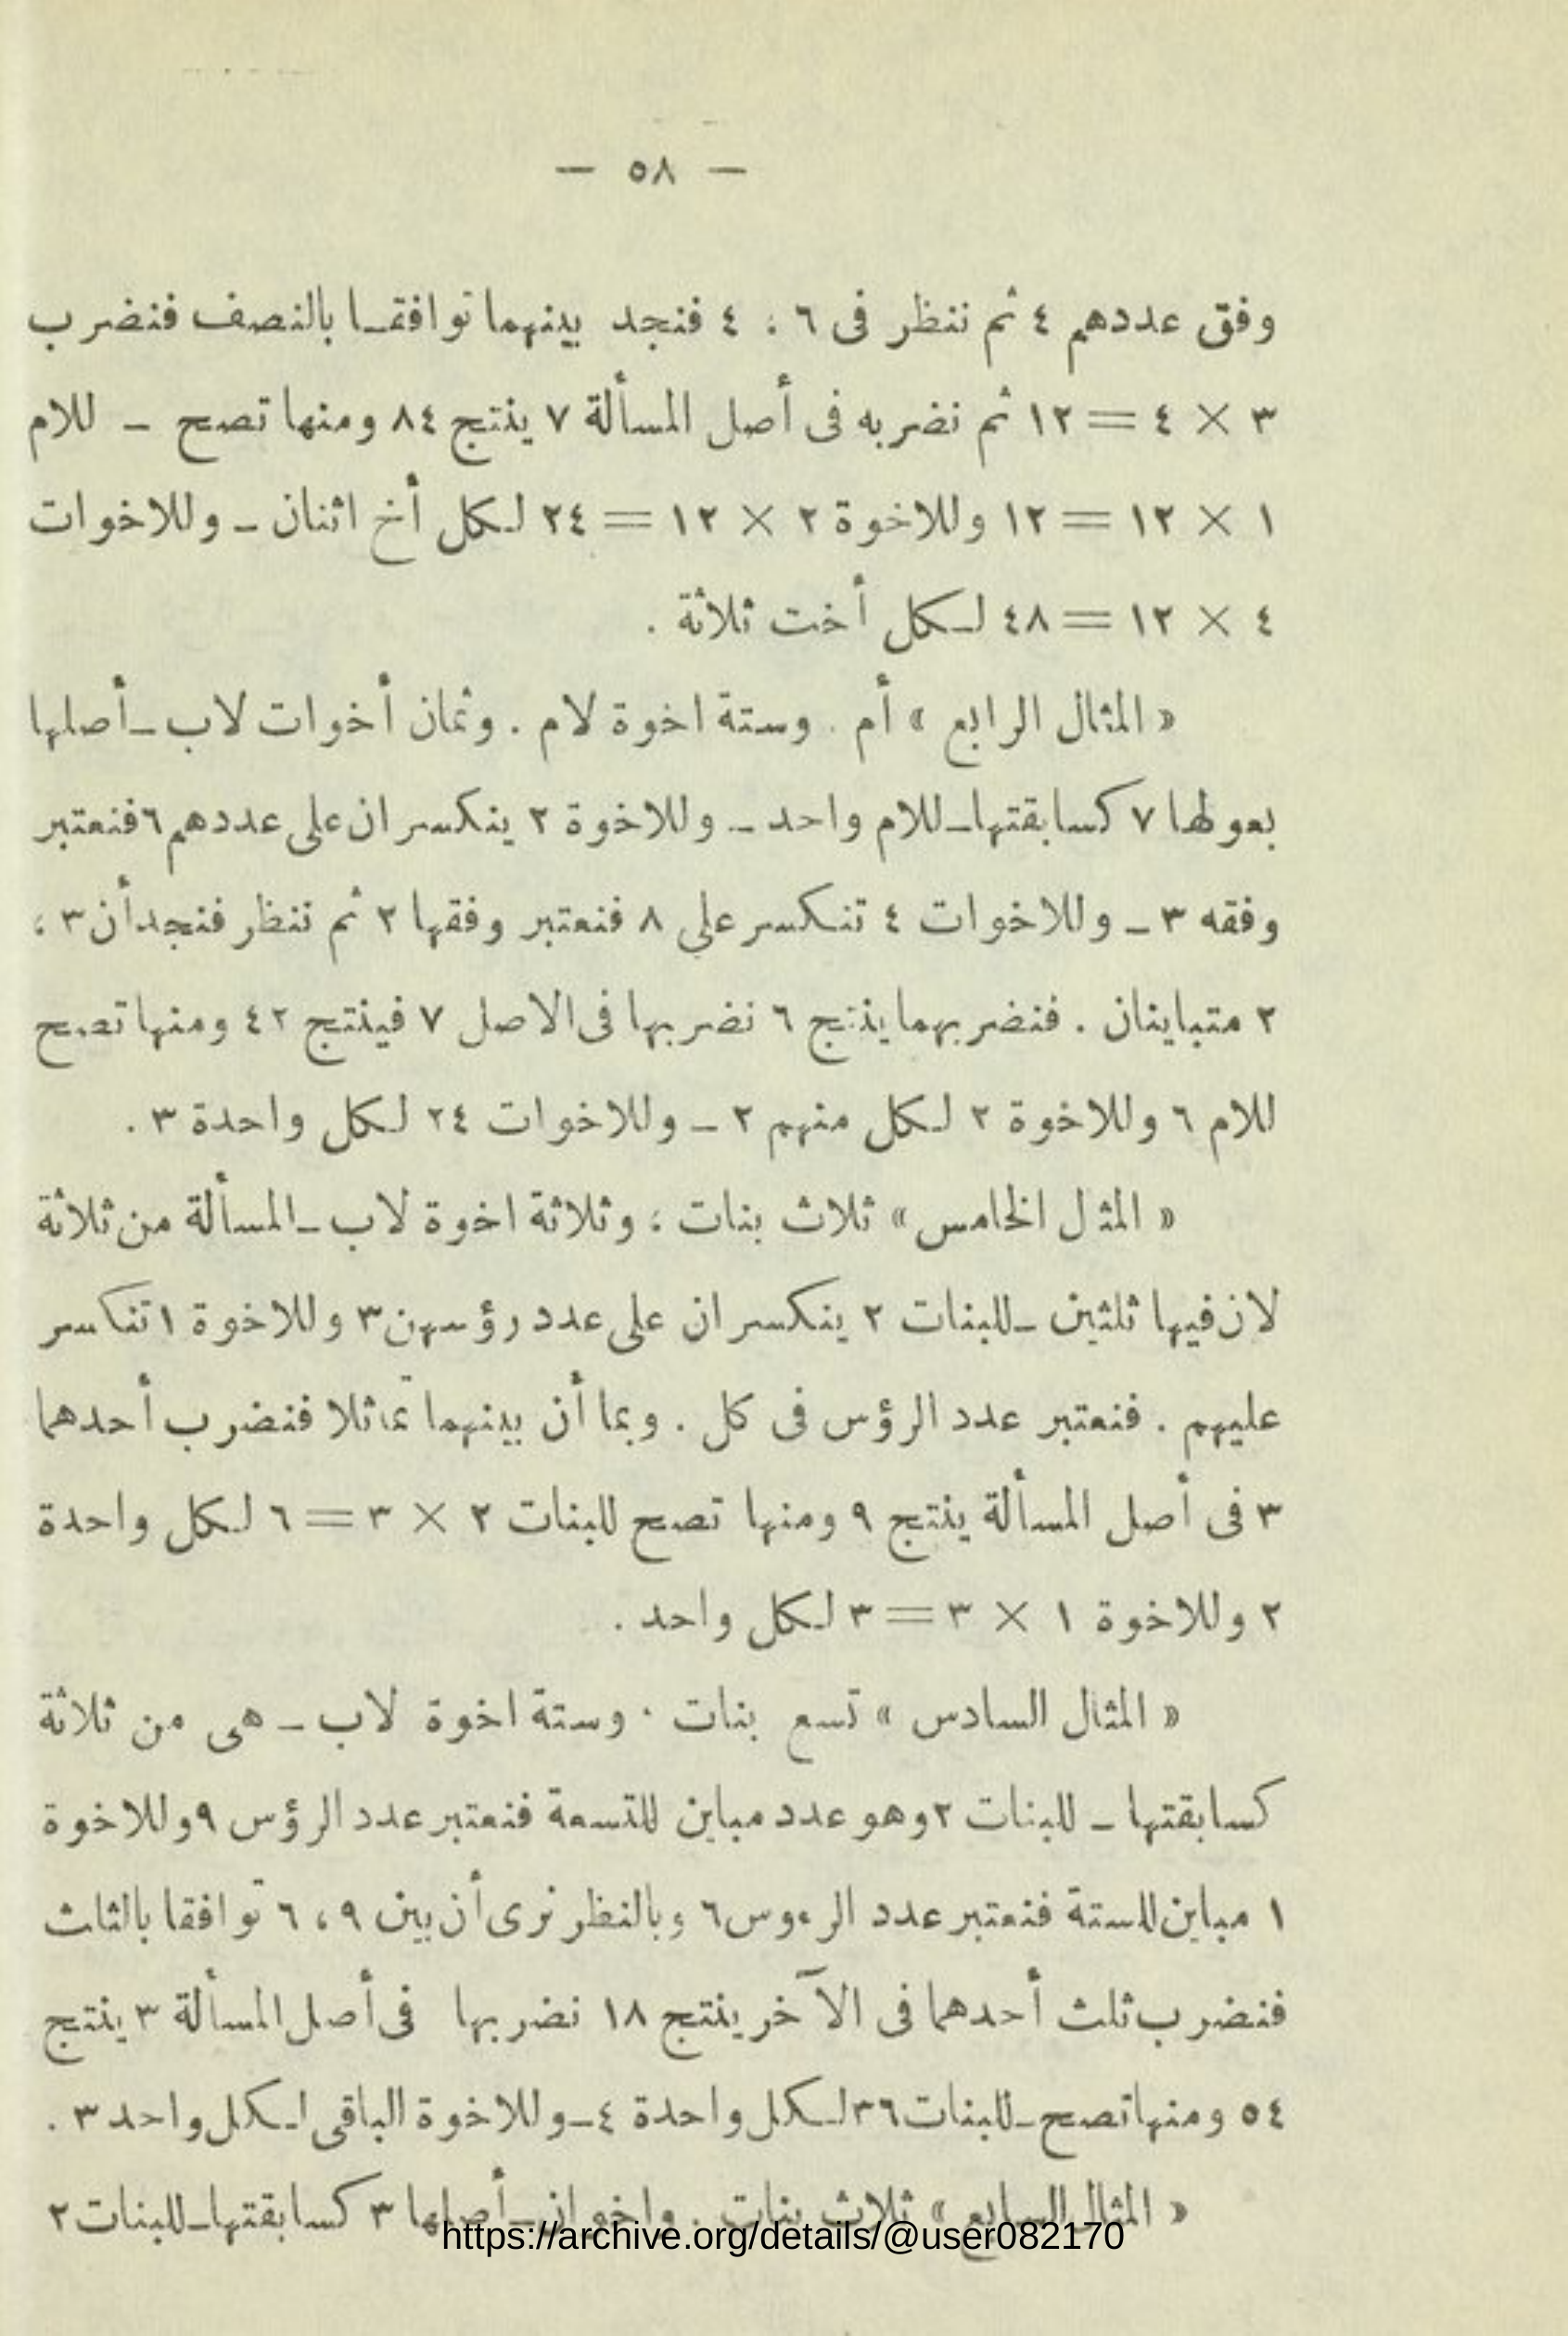 — ٥٨ —
وفق عددهم ٤ ثم ننظر فى ٦ ؛ ٤ فنجد بينهما توافقـا بالنصف فنضرب
٣ × ٤ = ١٢ ثم نضربه فى أصل المسألة ٧ ينتج ٨٤ ومنها تصح – للام
١ × ١٢ = ١٢ وللاخوة ٢ × ١٢ = ٢٤ لـكل أخ اثنان – وللاخوات
٤ × ١٢ = ٤٨ لـكل أخت ثلاثة .
« المثال الرابع » أم . وستة اخوة لام . وثمان أخوات لاب – أصلها
بعولها ٧ كسابقتها – للام واحد – وللاخوة ٢ ينكسران على عددهم ٦ فنعتبر
وفقه ٣ – وللاخوات ٤ تنـكسر على ٨ فنعتبر وفقها ٢ ثم ننظر فنجد أن ٣ ؛
٢ متباينان . فنضربهما ينتج ٦ نضربها فى الاصل ٧ فينتج ٤٢ ومنها تصح
للام ٦ وللاخوة ٢ لـكل منهم ٢ – وللاخوات ٢٤ لـكل واحدة ٣ .
« المثـل الخامس » ثلاث بنات ؛ وثلاثة اخوة لاب – المسألة من ثلاثة
لان فيها ثلثين – للبنات ٢ ينكسران على عدد رؤسهن ٣ وللاخوة ١ تنكسر
عليهم . فنعتبر عدد الرؤس فى كل . وبما أن بينهما تماثلا فنضرب أحدهما
٣ فى أصل المسألة ينتج ٩ ومنها تصح للبنات ٢ × ٣ = ٦ لـكل واحدة
٢ وللاخوة ١ × ٣ = ٣ لـكل واحد .
« المثال السادس » تسع بنات ٠ وستة اخوة لاب – هى من ثلاثة
كسابقتها – للبنات ٢ وهو عدد مباين للتسعة فنعتبر عدد الرؤس ٩ وللاخوة
١ مباين للستة فنعتبر عدد الرءوس ٦ وبالنظر نرى أن بين ٩ ، ٦ توافقا بالثلث
فنضرب ثلث أحدهما فى الآخر ينتج ١٨ نضربها فى أصل المسألة ٣ ينتج
٥٤ ومنها تصح – للبنات ٣٦ لـكل واحدة ٤ – وللاخوة الباقى لـكل واحد ٣ .
« المثال السابع » ثلاث بنات . واخوان – أصلها ٣ كسابقتها – للبنات ٢
https://archive.org/details/@user082170